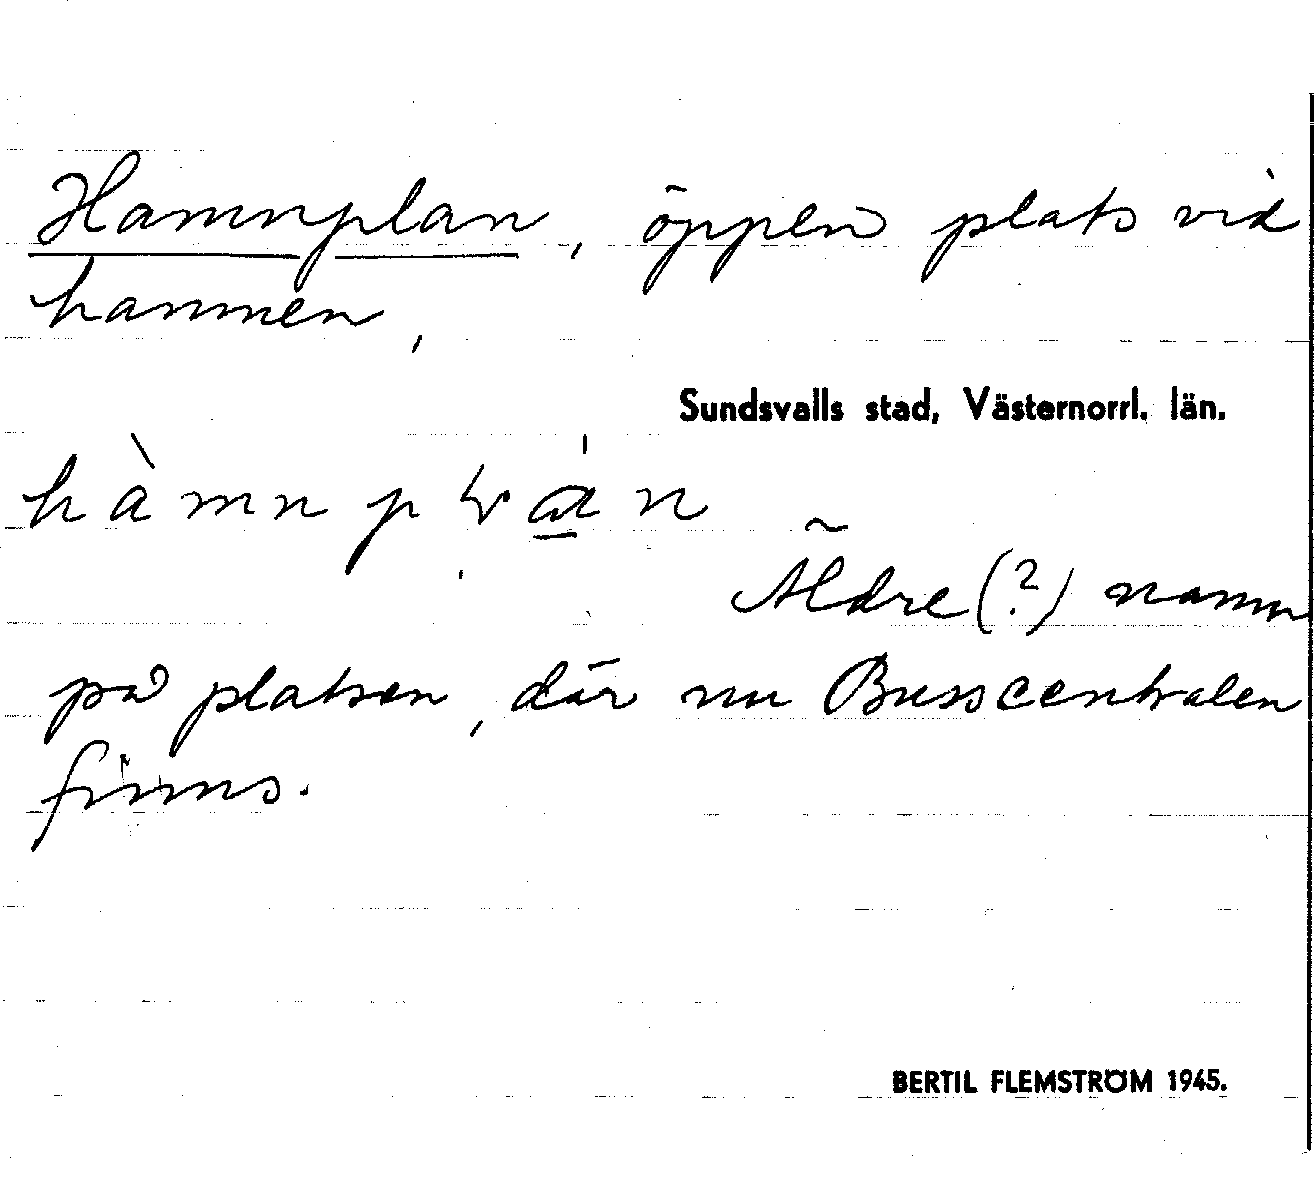 Hamnplan, öppen plats vid
hamnen,
Sundsvalls stad, Västernorrl. län.
Äldre (?) namn
på platsen, där nu Busscentralen
finns.
BERTIL FLEMSTRÖM 1945.